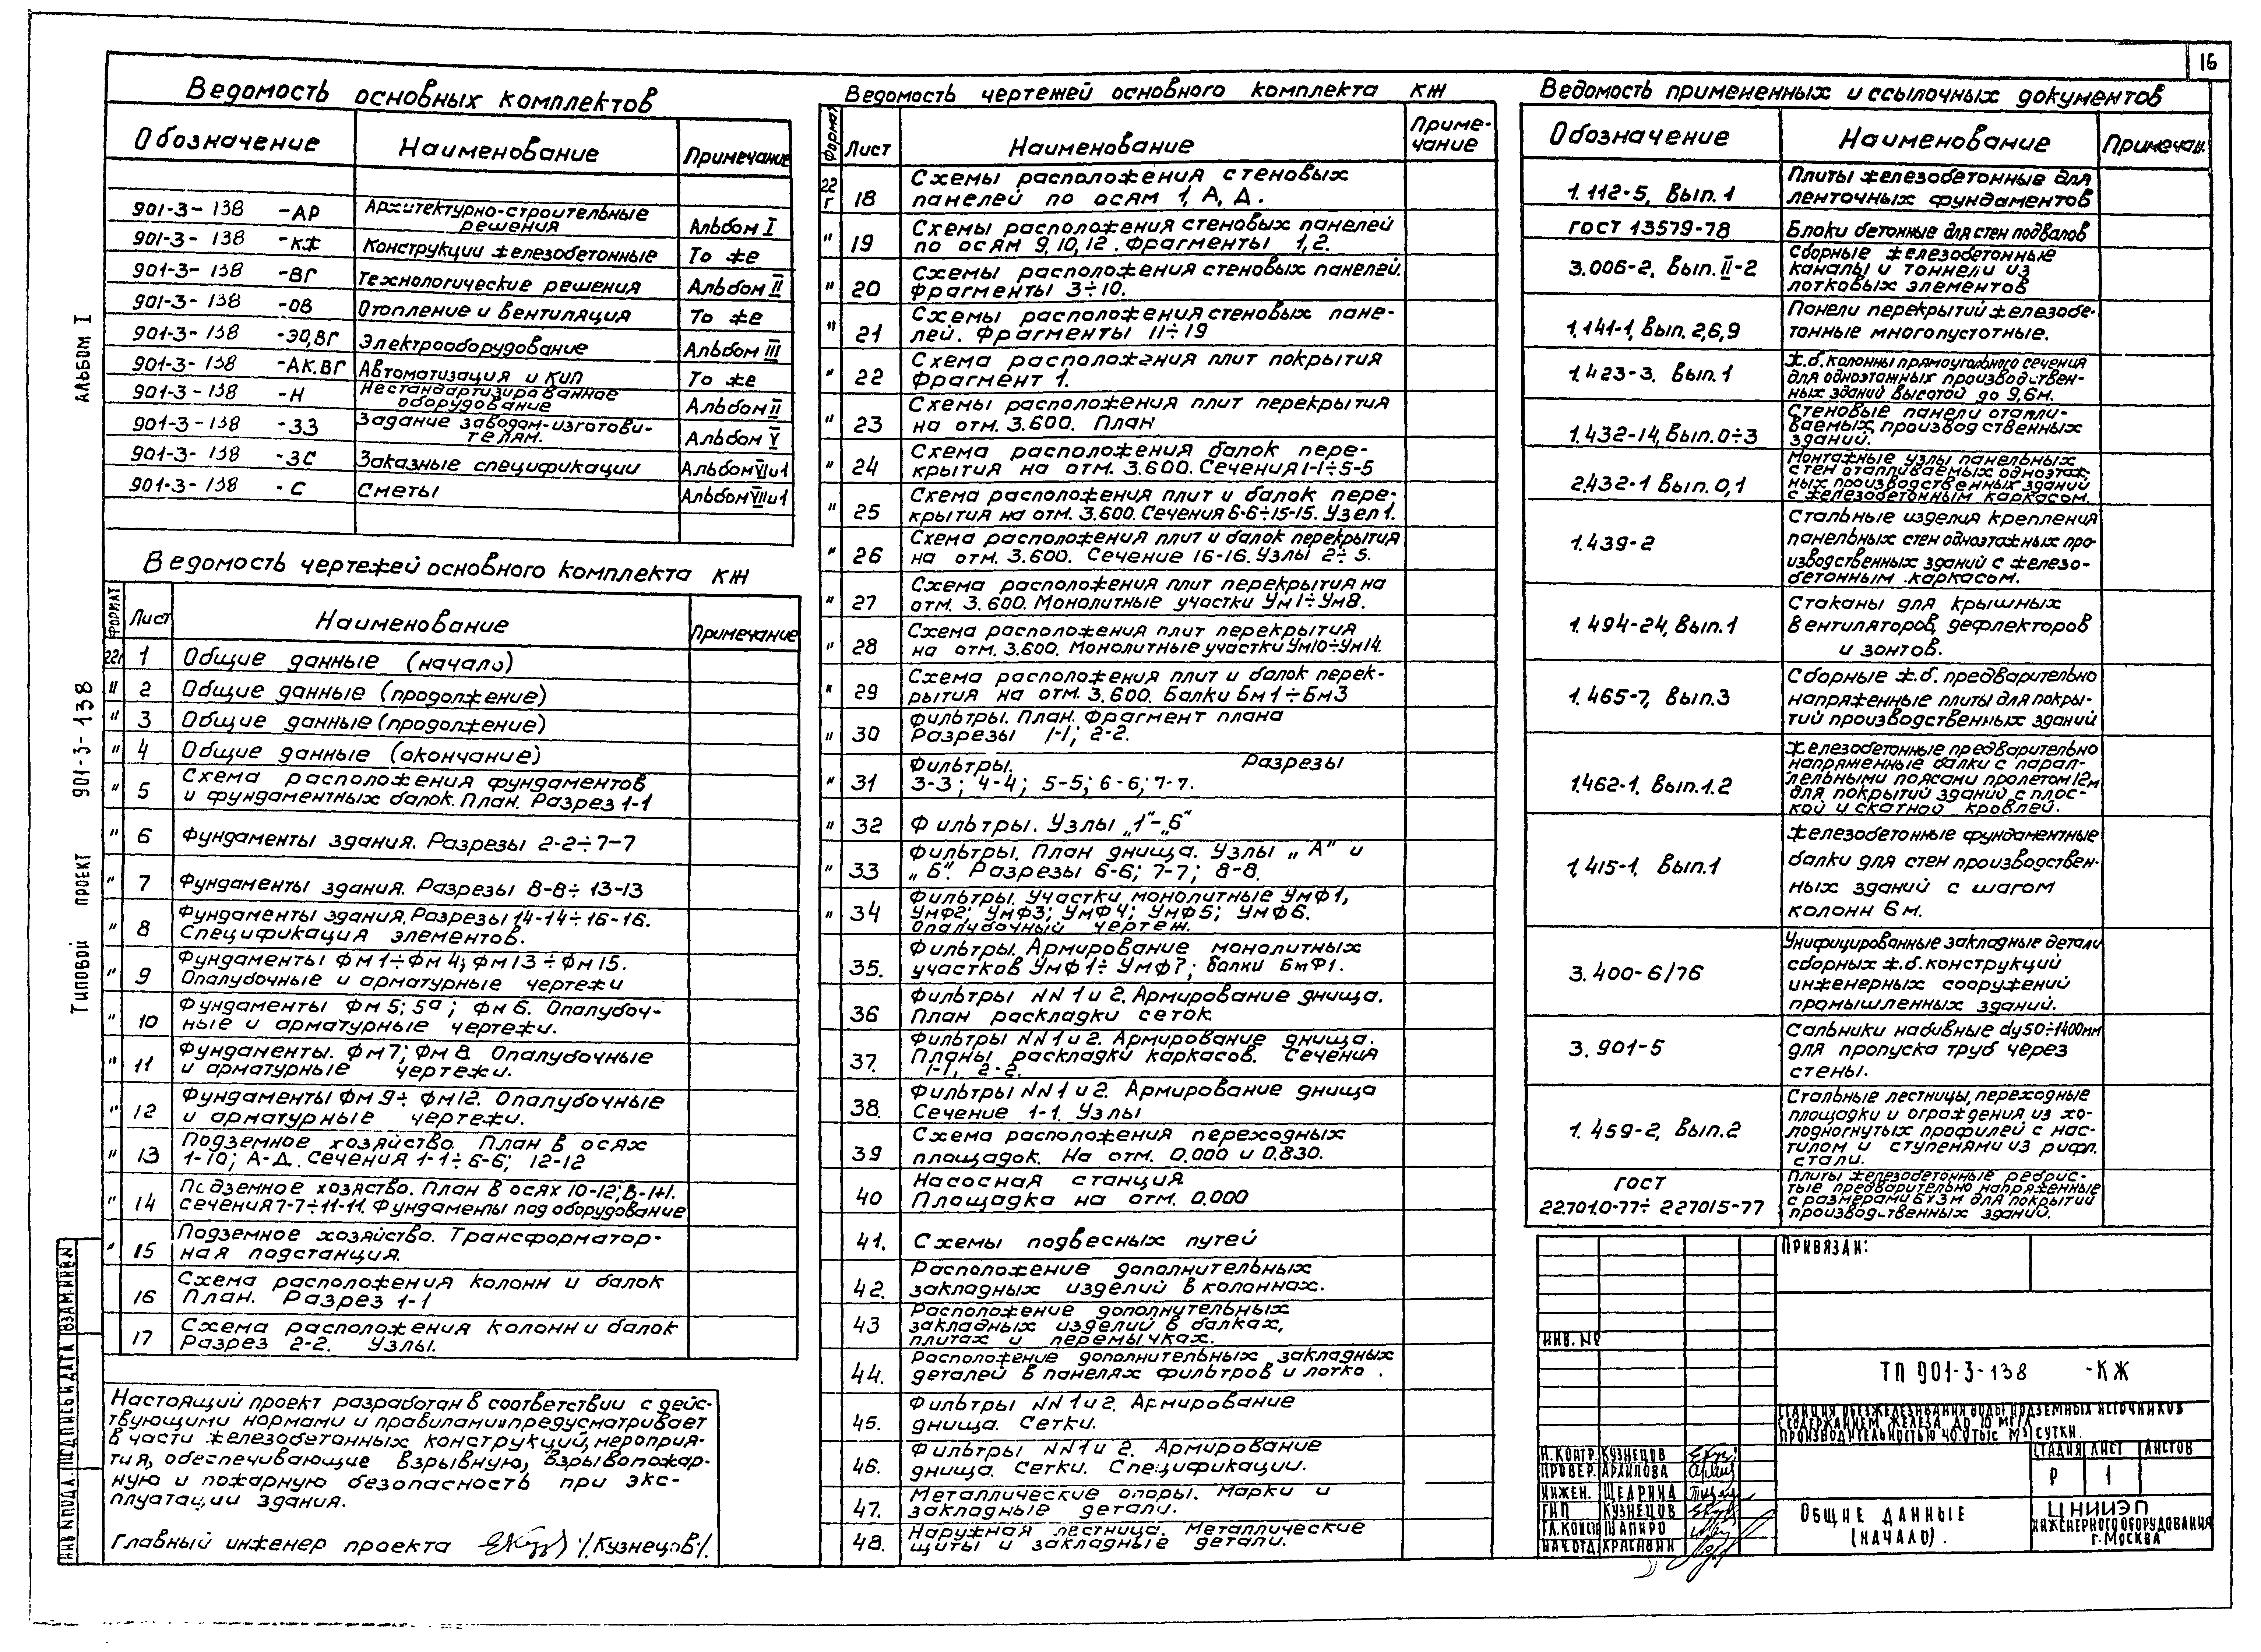 16
Ведомость основных комплектов
Обозначение Наименование Примечание
901-3-138 -АР Архитектурно-строительные решения Альбом I
901-3-138 -КЖ Конструкции железобетонные То же
901-3-138 -ВГ Технологические решения Альбом II
901-3-138 -ОВ Отопление и вентиляция То же
901-3-138 -ЭО,ВГ Электрооборудование Альбом III
901-3-138 -АК.ВГ Автоматизация и КИП То же
901-3-138 -Н Нестандартизированное оборудование Альбом II
901-3-138 -ЗЗ Задание заводам-изготовителям. Альбом V
901-3-138 -ЗС Заказные спецификации Альбом VI и 1
901-3-138 -С Сметы Альбом VII и 1
Ведомость чертежей основного комплекта КЖ
Формат Лист Наименование Примечание
22г 1 Общие данные (начало)
" 2 Общие данные (продолжение)
" 3 Общие данные (продолжение)
" 4 Общие данные (окончание)
" 5 Схема расположения фундаментов
и фундаментных балок. План. Разрез 1-1
" 6 Фундаменты здания. Разрезы 2-2÷7-7
" 7 Фундаменты здания. Разрезы 8-8÷13-13
" 8 Фундаменты здания. Разрезы 14-14÷16-16.
Спецификация элементов.
" 9 Фундаменты Фм1÷Фм4; Фм13÷Фм15.
Опалубочные и арматурные чертежи
" 10 Фундаменты Фм5; 5а; Фм6. Опалубоч-
ные и арматурные чертежи.
" 11 Фундаменты. Фм7; Фм8. Опалубочные
и арматурные чертежи.
" 12 Фундаменты Фм9÷Фм12. Опалубочные
и арматурные чертежи.
" 13 Подземное хозяйство. План в осях
1-10; А-Д. Сечения 1-1÷6-6; 12-12
" 14 Подземное хозяйство. План в осях 10-12;
Сечения 7-7÷11-11. Фундаменты под оборудование
" 15 Подземное хозяйство. Трансформатор-
ная подстанция.
16 Схема расположения колонн и балок
План. Разрез 1-1
17 Схема расположения колонн и балок
Разрез 2-2. Узлы.
Настоящий проект разработан в соответствии с дейс-
твующими нормами и правилами и предусматривает
в части железобетонных конструкций, мероприя-
тия, обеспечивающие взрывную, взрывопожар-
ную и пожарную безопасность при экс-
плуатации здания.
Главный инженер проекта /Кузнецов/.
Ведомость чертежей основного комплекта КЖ
Формат Лист Наименование Приме-
чание
22г 18 Схемы расположения стеновых
панелей по осям 1, А, Д.
" 19 Схемы расположения стеновых панелей
по осям 9,10,12. Фрагменты 1,2.
" 20 Схемы расположения стеновых панелей.
Фрагменты 3÷10.
" 21 Схемы расположения стеновых пане-
лей. Фрагменты 11÷19
" 22 Схема расположения плит покрытия
Фрагмент 1.
" 23 Схемы расположения плит перекрытия
на отм. 3.600. План
" 24 Схема расположения балок пере-
крытия на отм. 3.600. Сечения 1-1÷5-5
" 25 Схема расположения плит и балок пере-
крытия на отм. 3.600. Сечения 6-6÷15-15. Узел 1.
" 26 Схема расположения плит и балок перекрытия
на отм. 3.600. Сечение 16-16. Узлы 2÷5.
" 27 Схема расположения плит перекрытия на
отм. 3.600. Монолитные участки Ум1÷Ум8.
" 28 Схема расположения плит перекрытия
на отм. 3.600. Монолитные участки Ум10÷Ум14.
" 29 Схема расположения плит и балок перек-
рытия на отм. 3.600. Балки Бм1÷Бм3
" 30 Фильтры. План. Фрагмент плана
Разрезы 1-1; 2-2.
" 31 Фильтры. Разрезы
3-3; 4-4; 5-5; 6-6; 7-7.
" 32 Фильтры. Узлы „1"-„6"
" 33 Фильтры. План днища. Узлы „А" и
„Б". Разрезы 6-6; 7-7; 8-8.
" 34 Фильтры. Участки монолитные УмФ1,
УмФ2; УмФ3; УмФ4; УмФ5; УмФ6.
Опалубочный чертеж.
35. Фильтры. Армирование монолитных
участков УмФ1÷УмФ7; балки БмФ1.
36 Фильтры NN 1 и 2. Армирование днища.
План раскладки сеток
37. Фильтры NN 1 и 2. Армирование днища.
Планы раскладки каркасов. Сечения
1-1, 2-2.
38. Фильтры NN 1 и 2. Армирование днища
Сечение 1-1. Узлы
39 Схема расположения переходных
площадок. На отм. 0.000 и 0.830.
40 Насосная станция
Площадка на отм. 0.000
41. Схемы подвесных путей
42. Расположение дополнительных
закладных изделий в колоннах.
43 Расположение дополнутельных
закладных изделий в балках,
плитах и перемычках.
44. Расположение дополнительных закладных
деталей в панелях фильтров и лотко .
45. Фильтры NN 1 и 2. Армирование
днища. Сетки.
46. Фильтры NN 1 и 2. Армирование
днища. Сетки. Спецификации.
47. Металлические опоры. Марки и
закладные детали.
48. Наружная лестница. Металлические
щиты и закладные детали.
Ведомость примененных и ссылочных документов
Обозначение Наименование Примечан.
1.112-5, Вып.1 Плиты железобетонные для
ленточных фундаментов
ГОСТ 13579-78 Блоки бетонные для стен подвалов
3.006-2, Вып. II-2 Сборные железобетонные
каналы и тоннели из
лотковых элементов
1.141-1, Вып. 2,6,9 Панели перекрытий железобе-
тонные многопустотные.
1.423-3. Вып.1 Ж.б. колонны прямоугольного сечения
для одноэтажных производствен-
ных зданий высотой до 9,6м.
1.432-14, Вып. 0÷3 Стеновые панели отапли-
ваемых производственных
зданий.
2.432-1 Вып. 0,1 Монтажные узлы панельных
стен отапливаемых одноэтаж-
ных производственных зданий
с железобетонным каркасом.
1.439-2 Стальные изделия крепления
панельных стен одноэтажных про-
изводственных зданий с железо-
бетонным каркасом.
1.494-24, Вып.1 Стаканы для крышных
вентиляторов, дефлекторов
и зонтов.
1.465-7, Вып.3 Сборные ж.б. предварительно
напряженные плиты для покры-
тий производственных зданий
1.462-1. Вып.1.2 Железобетонные предварительно
напряженные балки с парал-
лельными поясами пролетом 12м
для покрытий зданий с плос-
кой и скатной кровлей.
1.415-1. Вып.1 Железобетонные фундаментные
балки для стен производствен-
ных зданий с шагом
колонн 6м.
3.400-6/76 Унифицированные закладные детали
сборных ж.б. конструкций
инженерных сооружений
промышленных зданий.
3.901-5 Сальники набивные dу50÷1400мм
для пропуска труб через
стены.
1.459-2, Вып.2 Стальные лестницы, переходные
площадки и ограждения из хо-
лодногнутых профилей с нас-
тилом и ступенями из рифл.
стали.
ГОСТ
22701.0-77÷ 22701.5-77 Плиты железобетонные ребрис-
тые предварительно напряженные
с размерами 6х3м для покрытий
производственных зданий.
Привязан:
Инв. №
ТП 901-3-138 -КЖ
Станция обезжелезивания воды подземных источников
с содержанием железа до 10 мг/л
производительностью 40.0 тыс м³/сутки.
Стадия Лист Листов
Р 1
Н.контр. Кузнецов
Провер. Архипова
Инжен. Щедрина
ГИП Кузнецов
Гл.констр Шапиро
Нач.отд. Красавин
Общие данные
(начало).
ЦНИИЭП
инженерного оборудования
г. Москва
Альбом I
Типовой проект 901-3-138
Инв N подл. Подпись и дата Взам. инв N